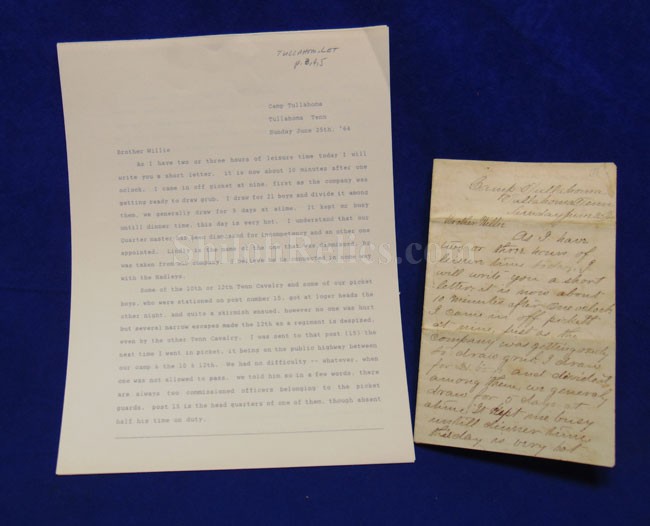 TULLAHOMA.LET
Camp Tullahoma
Tullahoma Tenn
Sunday June 25th, '64
Brother Willie
As I have two or three hours of leisure time today I will
write you a short letter. it is now about 10 minutes after one
oclock. I came in off picket at nine, first as the company was
getting ready to draw grub. I draw for 21 boys and divide it among
them, we generally draw for 5 days at atime. It kept me busy
untill dinner time, this day is very hot. I understand that our
Quarter master has been dismissed for incompetency and an other one
appointed.
was taken from our company. I believe he is connected in some way
with the Hadleys.
Some of the 10th or 12th Tenn Cavalry and some of our picket
boys, who were stationed on post number 10, got at loger heads the
other night. And quite a skirmish ensued. however no one was hurt
but several narrow escapes made the 12th as a regiment is despised,
even by the other Tenn Cavalry. I was sent to that post (10) the
next time I went on picket, it being on the public highway between
our camp & the 10 & 12th. We had no difficulty -- whatever, when
one was not allowed to pass. we told him so in a few words. there
are always two commissioned officers belonging to the picket
guards. post it is the head quarters of one of them, though absent
half his time on duty.
Camp Tullahoma
Tullahoma Tenn
Sunday June 25
Brother Willie
As I have
two or three hours of
leisure time today I
will write you a short
letter, it is now about
10 minutes after one oclock
I came in off picket
at nine, just as the
company was getting ready
to draw grub I draw
for 21 and divide it
among them, we generally
draw for 5 days at
atime, It kept me busy
untill dinner time
this day is very hot
ShilohRelics.com